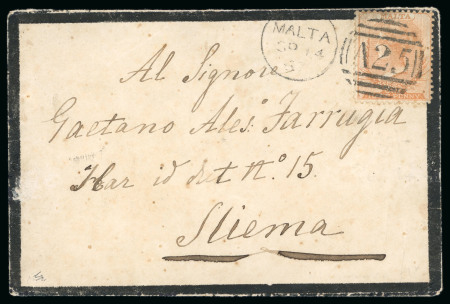 MALTA
SP 14
MALTA
A25
Al Signore
Gaetano Ales.° Farrugia
Har id dut N.° 15
Sliema